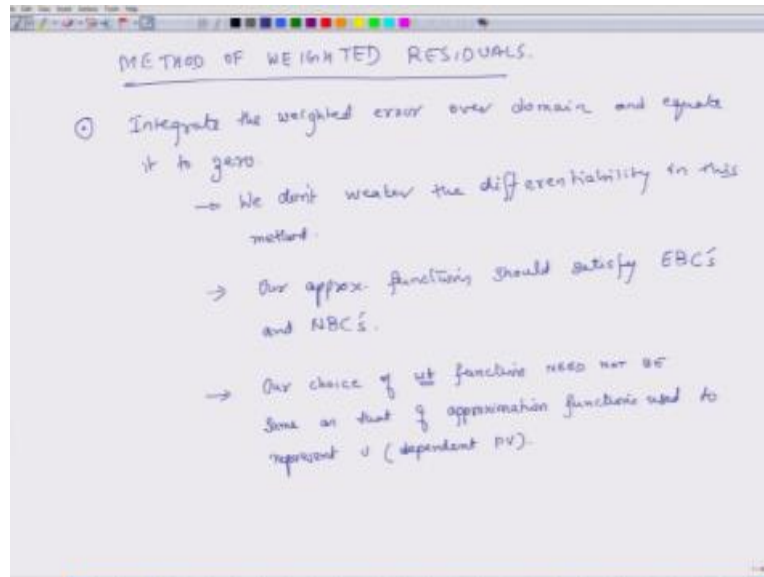 METHOD OF WEIGHTED RESIDUALS.
Integrate the weighted error over domain and equate
it to zero.
→ We don't weaken the differentiability in this
method.
→ Our approx. functions should satisfy EBC's
and NBC's.
→ Our choice of wt functions NEED NOT BE
same as that of approximation functions used to
represent u (dependent PV).